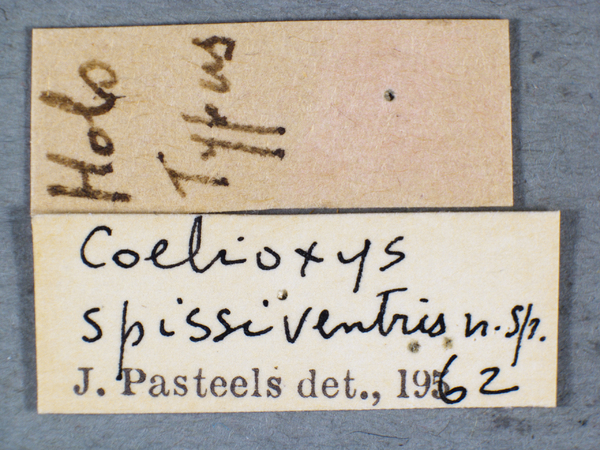 Holo
Typus
Coelioxys
spissiventris n. sp.
J. Pasteels det., 1962